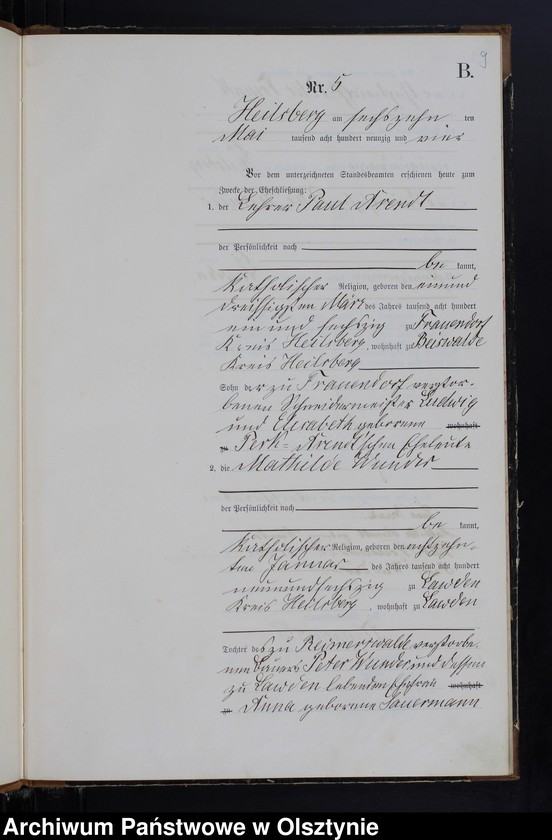 9
B.
Nr. 5
Heilsberg am sechszehn ten
Mai tausend acht hundert neunzig und vier
Vor dem unterzeichneten Standesbeamten erschienen heute zum
Zwecke der Eheschließung:
1. der Lehrer Paul Arendt
der Persönlichkeit nach
be kannt,
katholischer Religion, geboren den einund
dreißigsten März des Jahres tausend acht hundert
ein und sechszig zu Frauendorf
Kreis Heilsberg, wohnhaft zu Beiswalde
Kreis Heilsberg
Sohn der zu Frauendorf verstor-
benen Schneidermeister Ludwig
und Elisabeth geborene wohnhaft
zu Perk-Arendt'schen Eheleute
2. die Mathilde Wunder
der Persönlichkeit nach
be kannt,
katholischer Religion, geboren den achtzehn-
ten Januar des Jahres tausend acht hundert
neunundsechszig zu Lawden
Kreis Heilsberg, wohnhaft zu Lawden
Tochter des zu Reimerswalde verstorbe-
nen Bauers Peter Wunder und dessen
zu Lawden lebenden Ehefrau wohnhaft
zu Anna geborene Sauermann
Archiwum Państwowe w Olsztynie